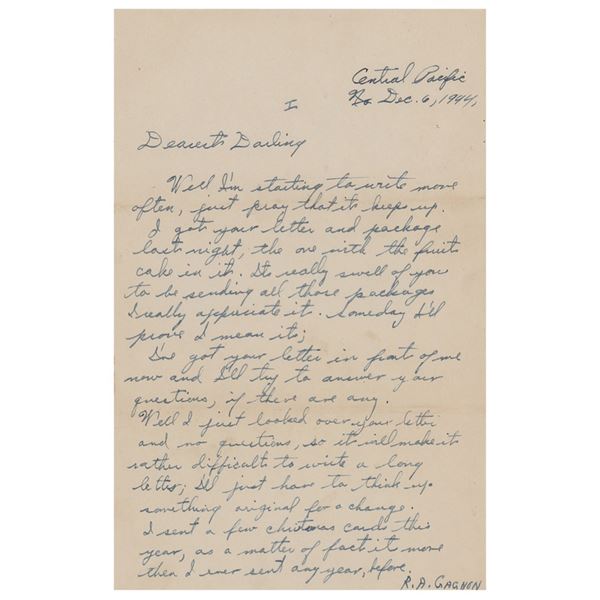 Central Pacific
Dec. 6, 1944,
I
Dearest Darling
Well I'm starting to write more
often, just pray that it keeps up.
I got your letter and package
last night, the one with the fruit
cake in it. Its really swell of you
to be sending all those packages
I really appriciate it. Someday I'll
prove I mean it;
I've got your letter in front of me
now and I'll try to answer your
questions, if there are any.
Well I just looked over your letter
and no questions, so it will make it
rather difficult to write a long
letter; I'll just have to think up
something original for a change.
I sent a few christmas cards this
year, as a matter of fact it more
then I ever sent any year, before.
R.A. GAGNON